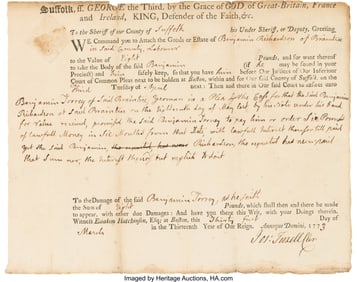 Suffolk, ss. GEORGE the Third, by the Grace of GOD of Great-Britain, France
and Ireland, KING, Defender of the Faith, &c.
To the Sheriff of our County of Suffolk his Under Sheriff, or Deputy, Greeting,
WE Command you to Attach the Goods or Estate of Benjamin Richardson of Braintree
in said County, Labourer
to the Value of Eight Pounds, and for want thereof
to take the Body of the said Benjamin (if he may be found in your
Precinct) and him safely keep, so that you have him before Our Justices of Our Inferiour
Court of Common Pleas next to be holden at Boston, within and for Our said County of Suffolk, on the
Third Tuesday of April next: Then and there in Our said Court to answer unto
Benjamin Torrey of said Braintree Yeoman in a Plea of the Case for that the said Benjamin
Richardson at said Braintree on the fifteenth day of May last by his Note under his hand
for Value received promised the Benjamin Torrey to pay him or order Six Pounds
of lawfull Money in Six Months from that Date with lawfull Interest therefor till paid
Yet the said Benjamin Richardson, tho requested has never paid
that Sum nor the Interest thereof but neglects to do it
To the Damage of the said Benjamin Torrey, as he saith
the Sum of Eight Pounds, which shall then and there be made
to appear, with other due Damages: And have you there this Writ, with your Doings therein.
Witness Hutchinson, Esq; at Boston, this Thirty first Day of
March in the Thirteenth Year of Our Reign. Annoque Domini, 1773
Imaged by Heritage Auctions, HA.com